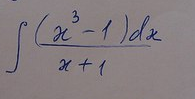 ∫ (x³ − 1) dx / (x + 1)